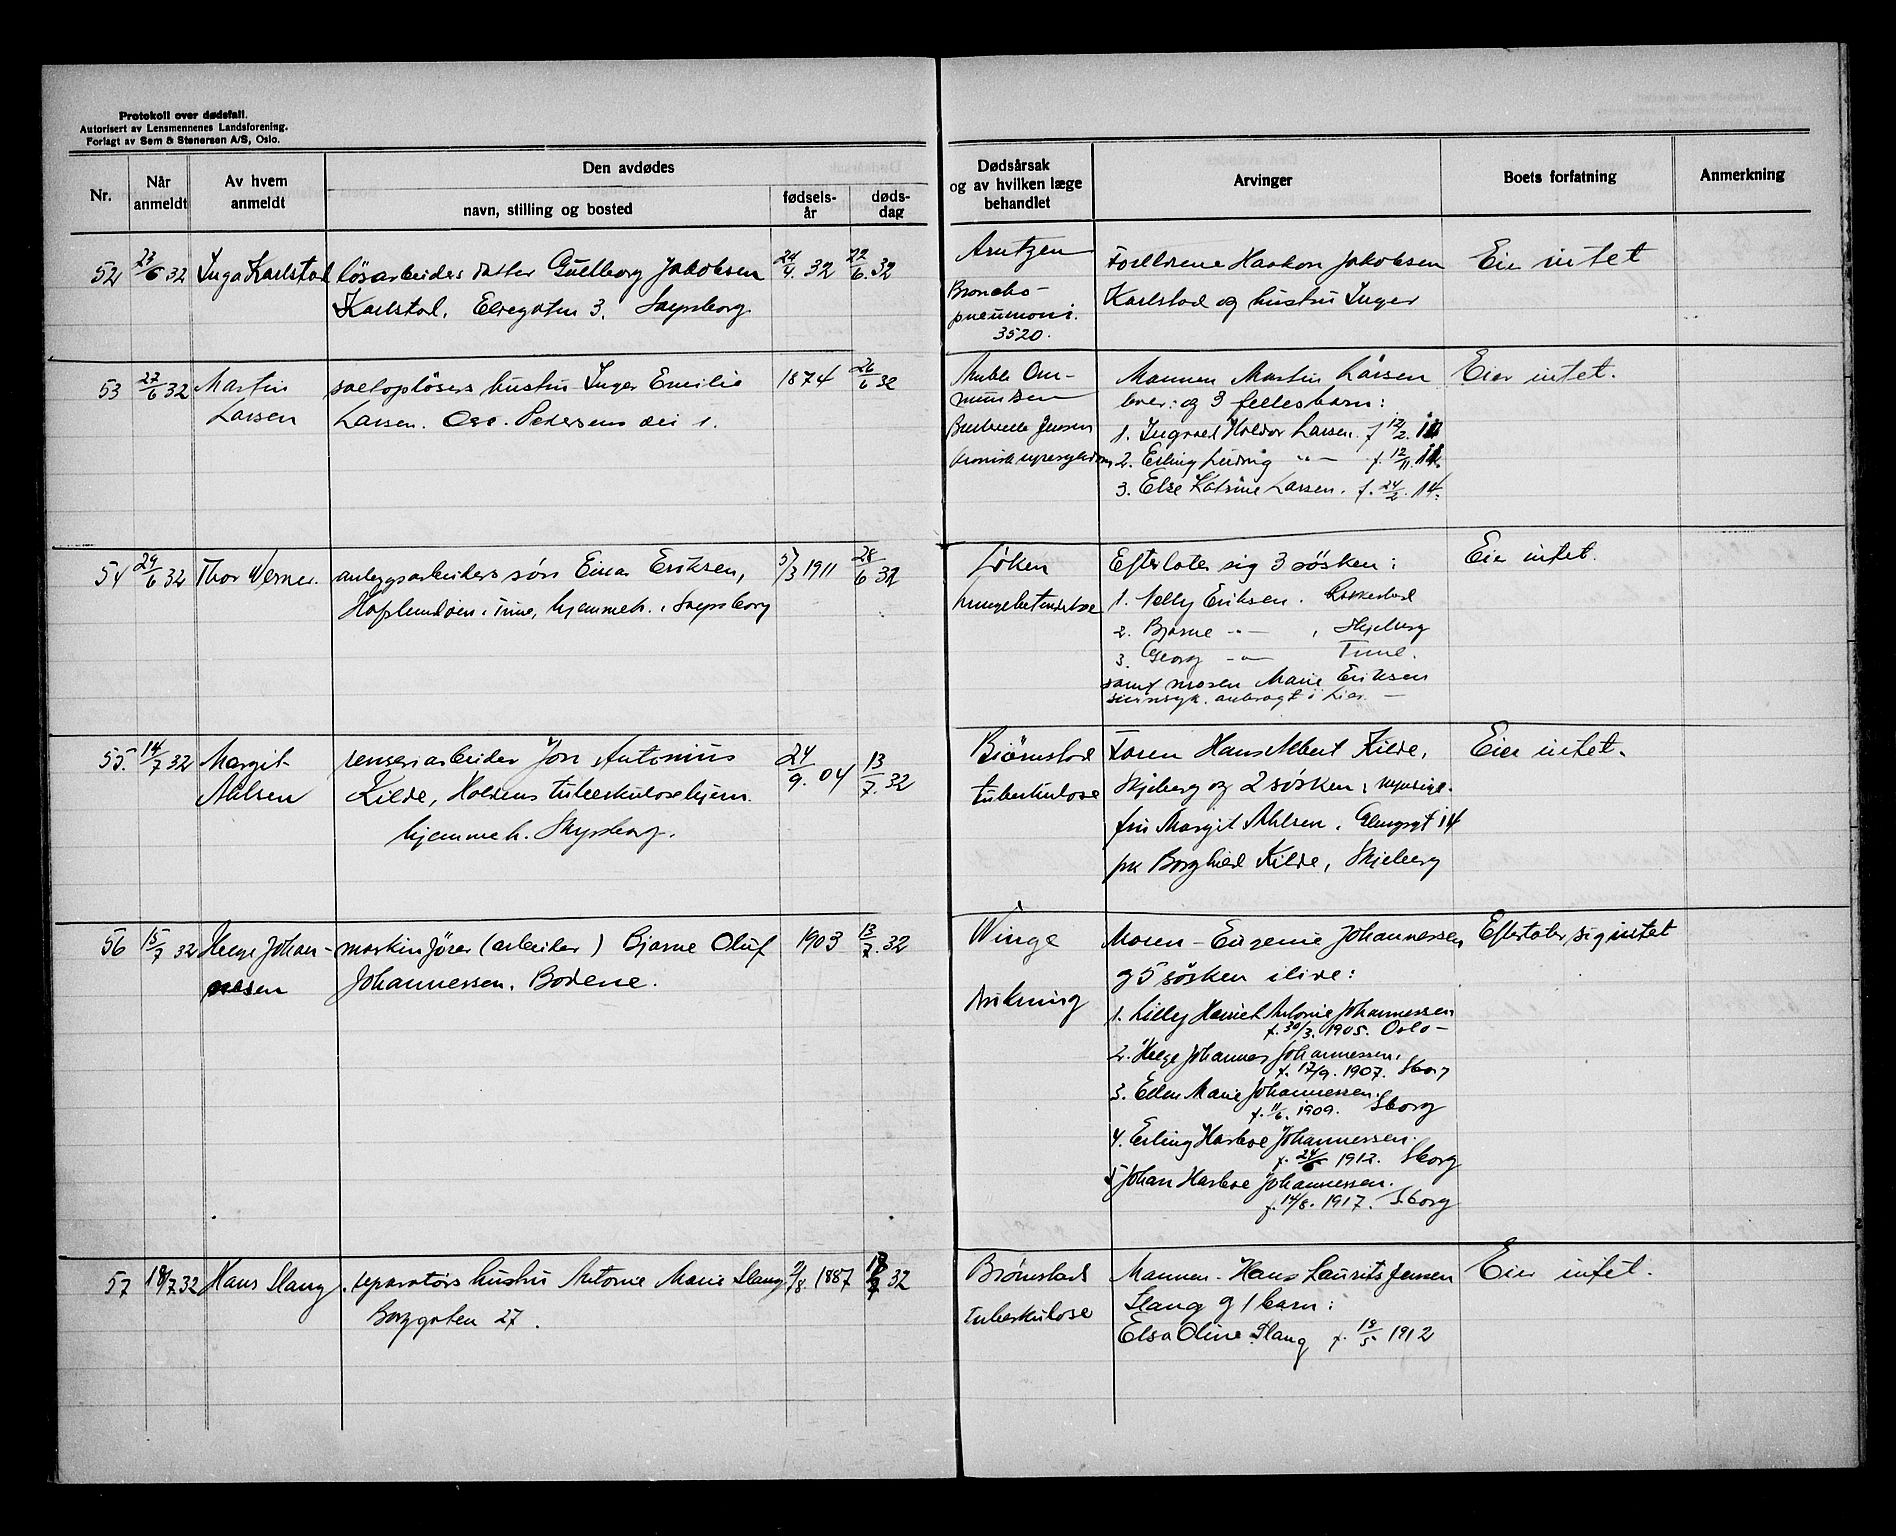 Protokoll over dødsfall.
Autorisert av Lensmennenes Landsforening.
Forlagt av Sem & Stenersen A/S, Oslo.
Nr.
Når anmeldt
Av hvem anmeldt
Den avdødes
navn, stilling og bosted
fødsels-år
døds-dag
Dødsårsak og av hvilken læge behandlet
Arvinger
Boets forfatning
Anmerkning
52 23/6 32 Inga Karlstad løsarbeider datter Gullborg Jakobsen 24/4. 32 22/6. 32
Karlstad, Elvegaten 3. Sarpsborg
Arntzen
Broncho-
pneumoni.
3520.
Foreldrene Haakon Jakobsen
Karlstad og hustru Inger
Eier intet
53 27/6 32 Martin
Larsen
hustru Inger Emilie 1874 26/6 32
Larsen. Osc. Pedersens vei 1.
Jensen
Mannen Martin Larsen
lever: og 3 fellesbarn:
1. Ingvald Haldor Larsen. f 12/2. 10
2. Erling Ludvig " f. 12/11. 11.
3. Else Katrine Larsen. f. 24/2. 14.
Eier intet.
54 29/6 32 Thor Werner. anleggsarbeiders søn Einar Eriksen, 5/3 1911 28/6 32
Haflundøen i Tune, hjemmeh. i Sarpsborg
Løken
Lungebetendelse
Efterlater sig 3 søsken:
1. Nelly Eriksen. Rakkestad
2. Bjarne " , Skjeberg
3. Georg " Tune.
samt moren Marie Eriksen
sinnsyk. anbragt i Lier. —
Eier intet.
55. 14/7 32 Margit
Ahlsen
renseriarbeider Jon Antonius 24/9. 04 13/7. 32
Kilde, Holdens tuberkulosehjem.
hjemmeh. Sarpsborg.
Bjørnstad
tuberkulose
Faren Hans Albert Kilde,
Skjeberg og 2 søsken: myndige.
fru Margit Ahlsen, Glengsgt 14
frk Borghild Kilde, Skjeberg
Eier intet.
56 15/7 32 Helge Johan-
nesen
maskinfører (arbeider) Bjarne Oluf 1903 13/7. 32
Johannessen. Bodene.
Winge
Drukning
Moren - Eugenie Johannessen
og 5 søsken i live:
1. Lilly Harriet Antonie Johannessen
f. 30/3. 1905. Oslo -
2. Helge Johannes Johannessen.
f. 12/9. 1907. Sborg
3. Ellen Marie Johannessen.
f. 11/6. 1909. Sborg
4. Erling Harboe Johannessen.
f. 24/6 1912. Sborg
5 Johan Harboe Johannessen.
f. 14/8. 1917. Sborg
Efterlater sig intet
57 18/7 32 Hans Slang. reparatørs hustru Antonie Marie Slang 2/8. 1887 18/7 32
Borggaten 27.
Bjørnstad
tuberkulose
Mannen - Hans Laurits Jensen
Slang og 1 barn:
Elsa Oline Slang f. 18/5 1912
Eier intet.